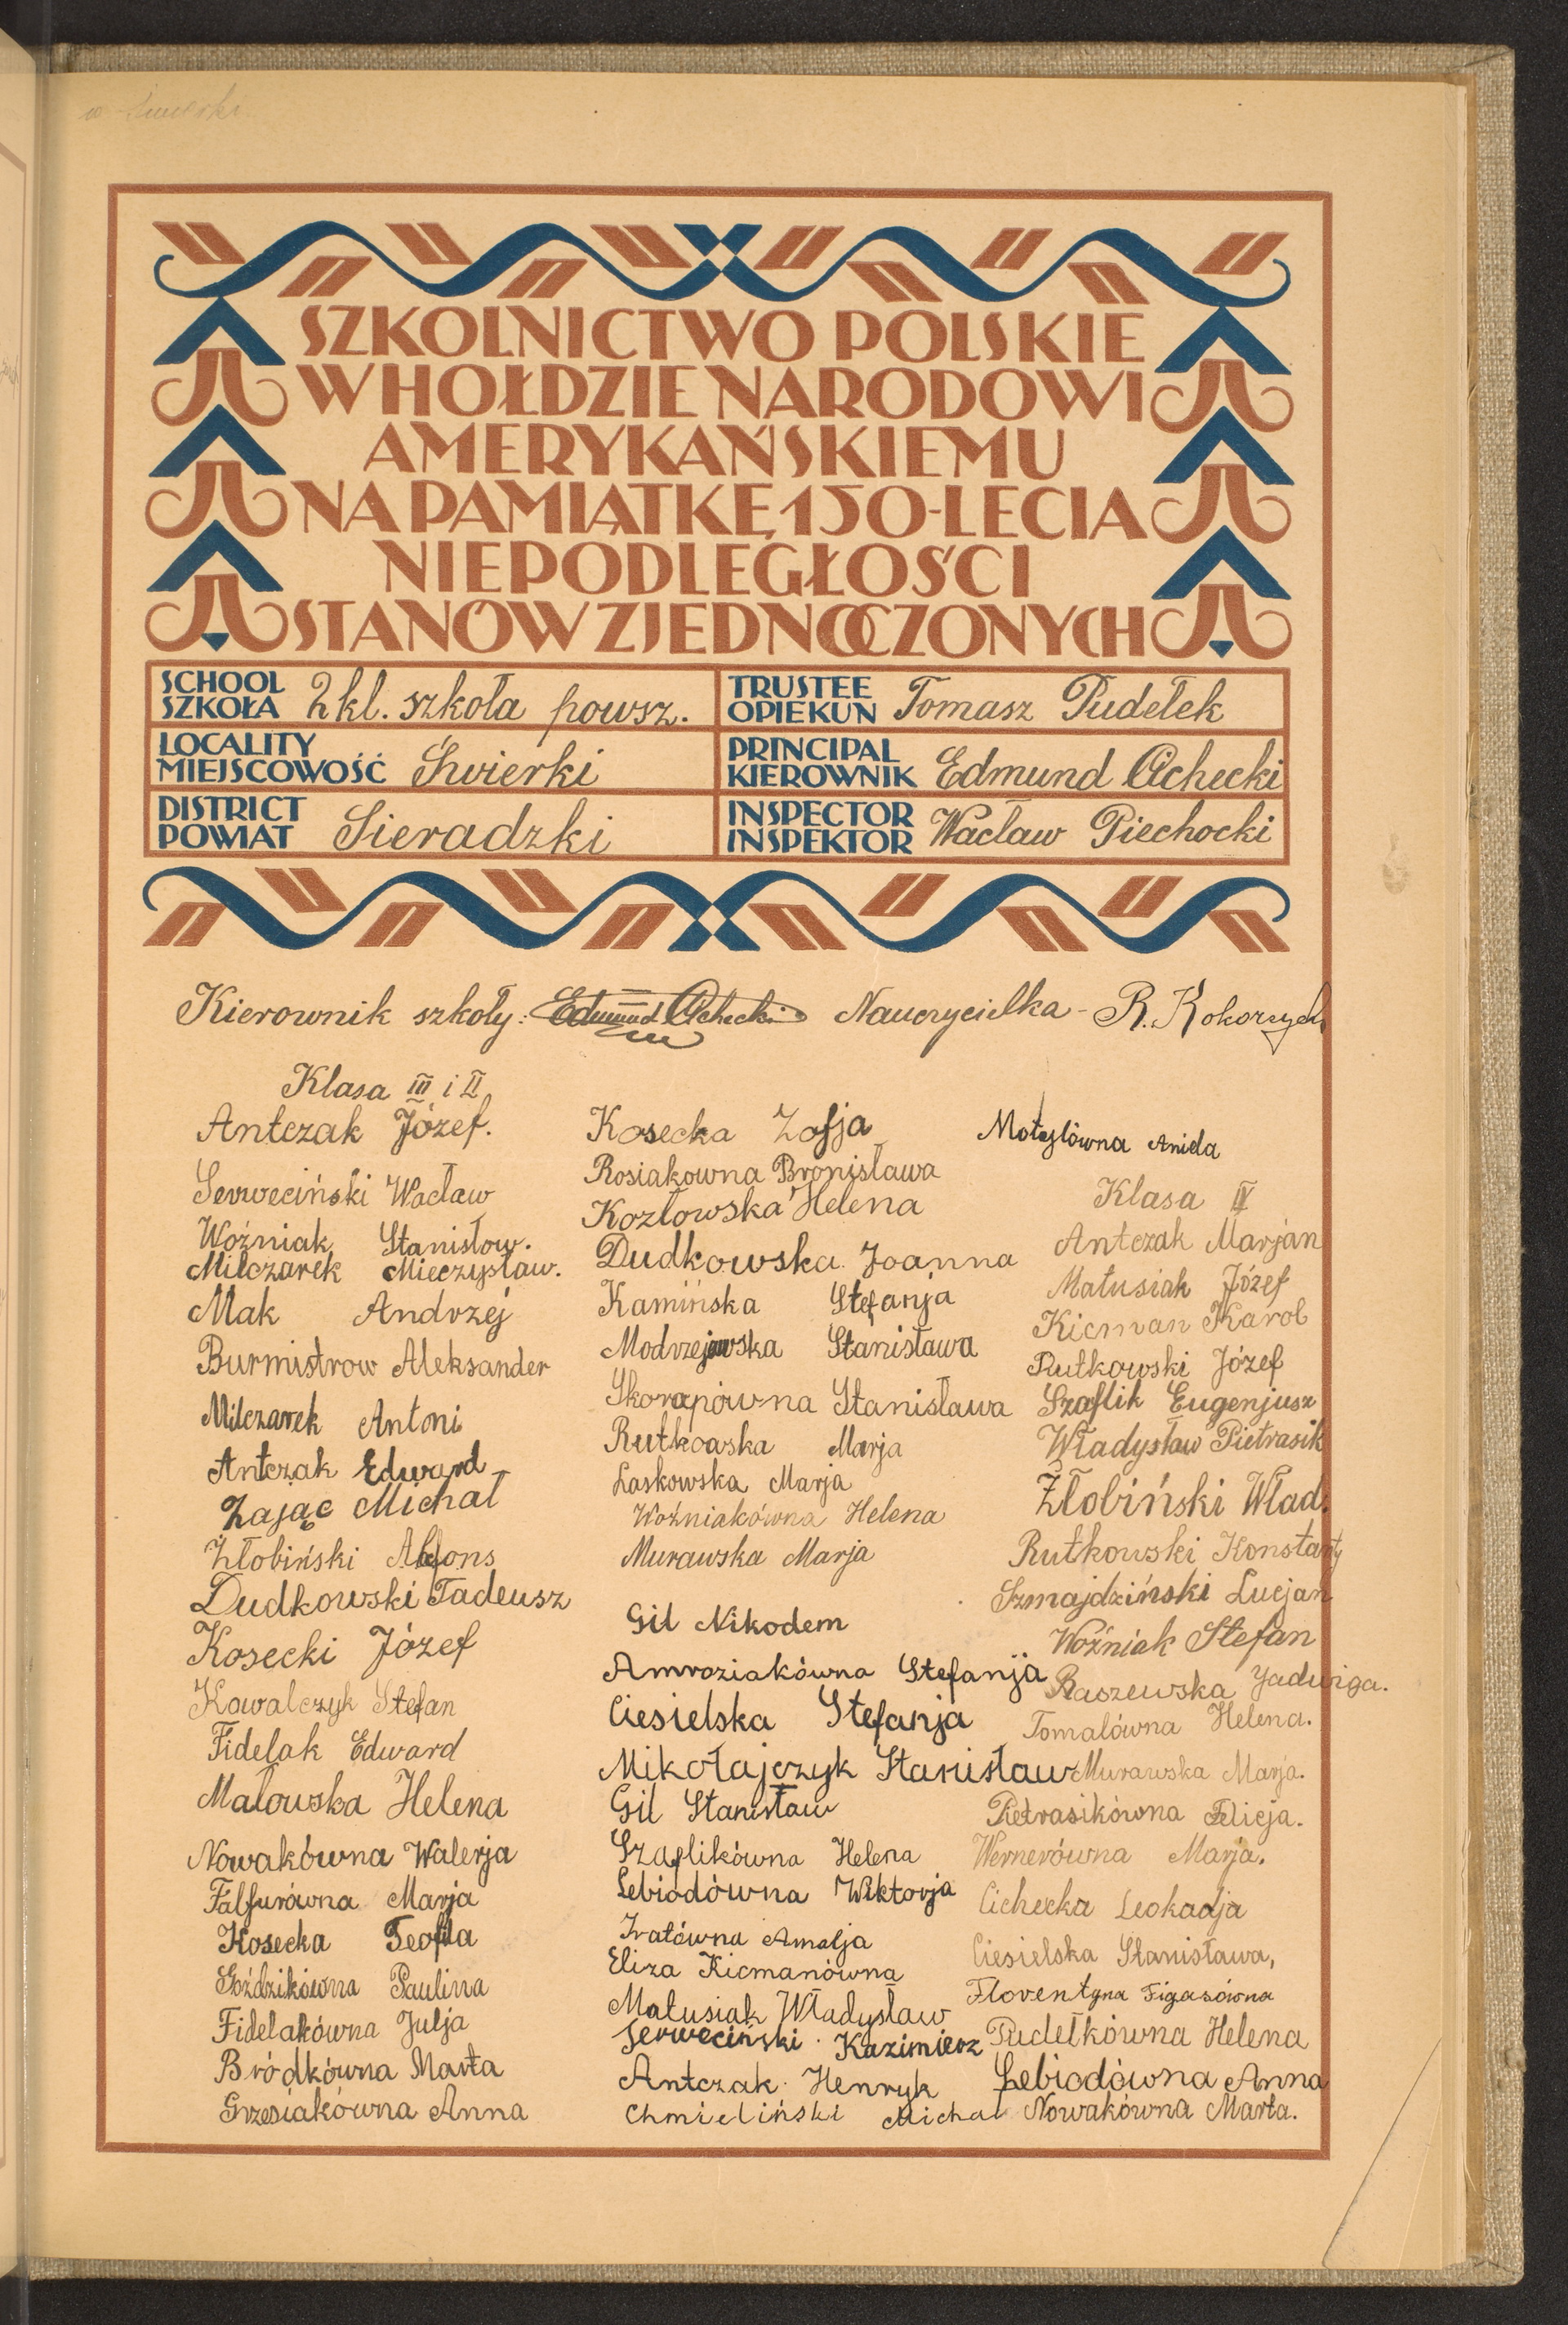 SZKOLNICTWO POLSKIE
W HOŁDZIE NARODOWI
AMERYKAŃSKIEMU
NA PAMIĄTKĘ 150-LECIA
NIEPODLEGŁOŚCI
STANÓW ZJEDNOCZONYCH
SCHOOL
SZKOŁA 2 kl. szkoła powsz.
TRUSTEE
OPIEKUN Tomasz Pudełek
LOCALITY
MIEJSCOWOŚĆ Świerki
PRINCIPAL
KIEROWNIK Edmund Cichecki
DISTRICT
POWIAT Sieradzki
INSPECTOR
INSPEKTOR Wacław Piechocki
Kierownik szkoły: Edmund Cichecki Nauczycielka - R.
Klasa III i II
Antczak Józef.
Serweciński Wacław
Woźniak Stanisław.
Milczarek Mieczysław.
Mak Andrzej
Burmistrow Aleksander
Milczarek Antoni
Antczak Edward
Zając Michał
Żłobiński Alfons
Dudkowski Tadeusz
Kosecki Józef
Kowalczyk Stefan
Fidelak Edward
Małowska Helena
Nowakówna Walerja
Falfurówna Marja
Kosecka Teofila
Goździkówna Paulina
Fidelakówna Julja
Bródkówna Marta
Grzesiakówna Anna
Kosecka Zofja
Rosiakowna Bronisława
Kozłowska Helena
Dudkowska Joanna
Kamińska Stefanja
Modrzejewska Stanisława
Skorupówna Stanisława
Rutkowska Marja
Laskowska Marja
Woźniakówna Helena
Murawska Marja
Gil Nikodem
Amroziakówna Stefanja
Ciesielska Stefanja
Mikołajczyk Stanisław
Gil Stanisław
Szaflikówna Helena
Lebiodówna Wiktorja
Amalja
Eliza Kicmanówna
Matusiak Władysław
Serweciński Kazimierz
Antczak Henryk
Chmieliński Michał
Motylówna Aniela
Klasa IV
Antczak Marjan
Matusiak Józef
Kicman Karol
Rutkowski Józef
Szaflik Eugenjusz
Władysław Pietrasik
Żłobiński Wład.
Rutkowski Konstanty
Szmajdziński Lucjan
Woźniak Stefan
Raszewska Jadwiga.
Tomalówna Helena.
Murawska Marja.
Pietrasikówna Felicja.
Wernerówna Marja.
Cichecka Leokadja
Ciesielska Stanisława,
Florentyna Figasówna
Pudełkówna Helena
Lebiodówna Anna
Nowakówna Marta.